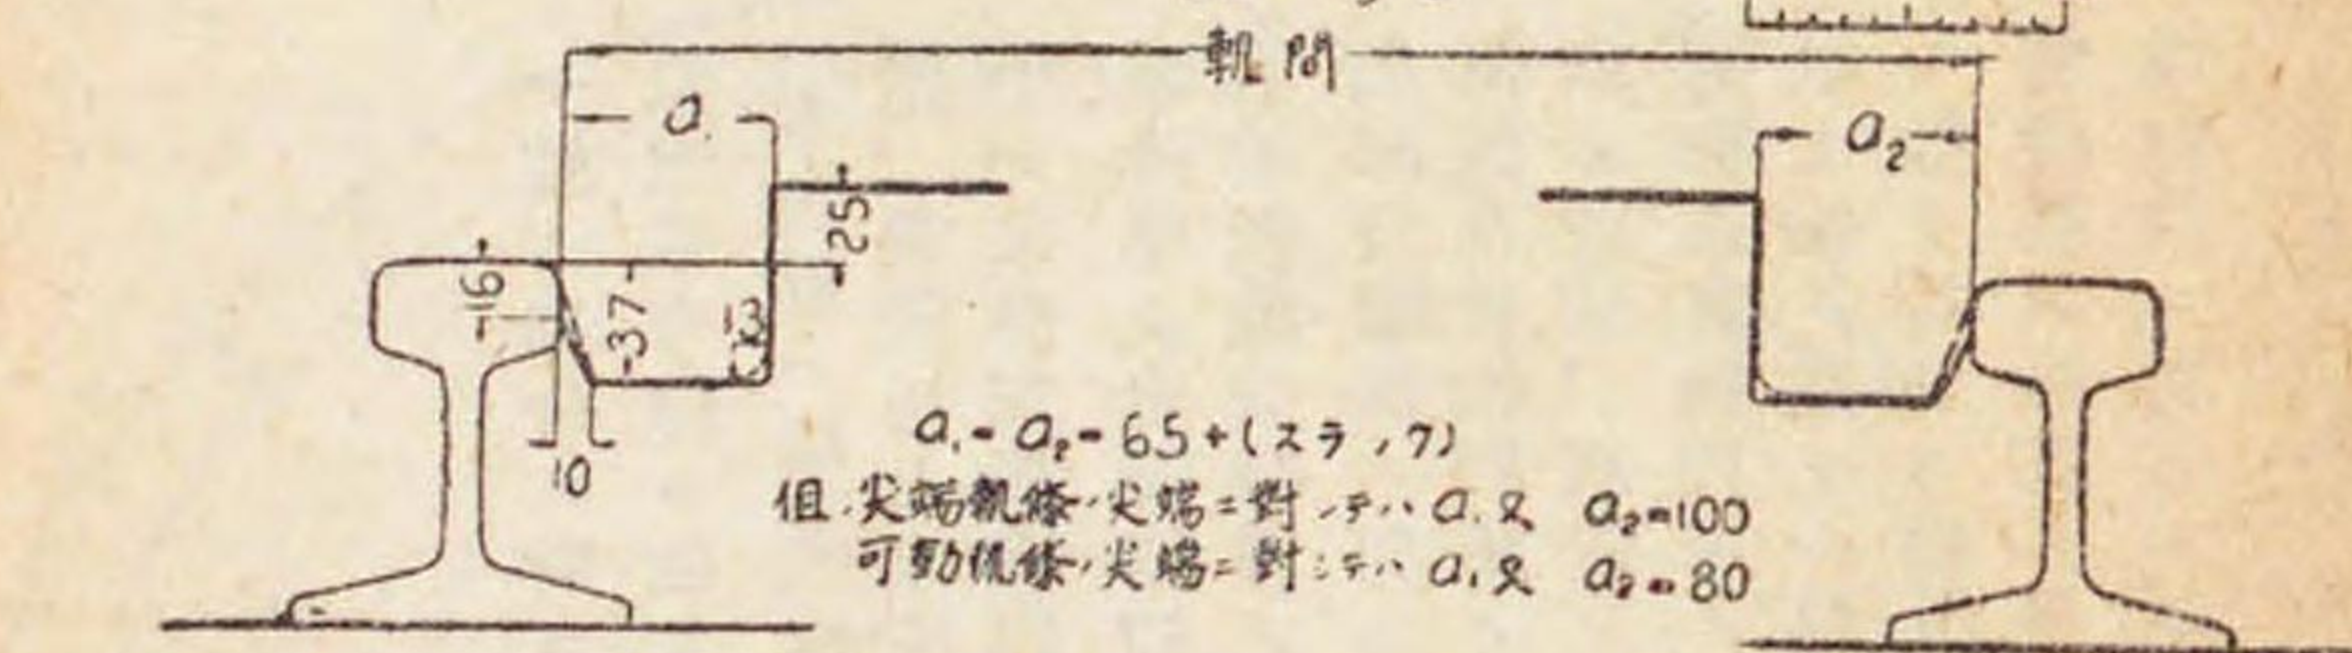 軌間
a₁
a₂
25
16
37
13
10
a₁=a₂=65+(スラック)
但.尖端軌條ノ尖端ニ對シテハ a₁又 a₂=100
可動軌條ノ尖端ニ對シテハ a₁又 a₂=80